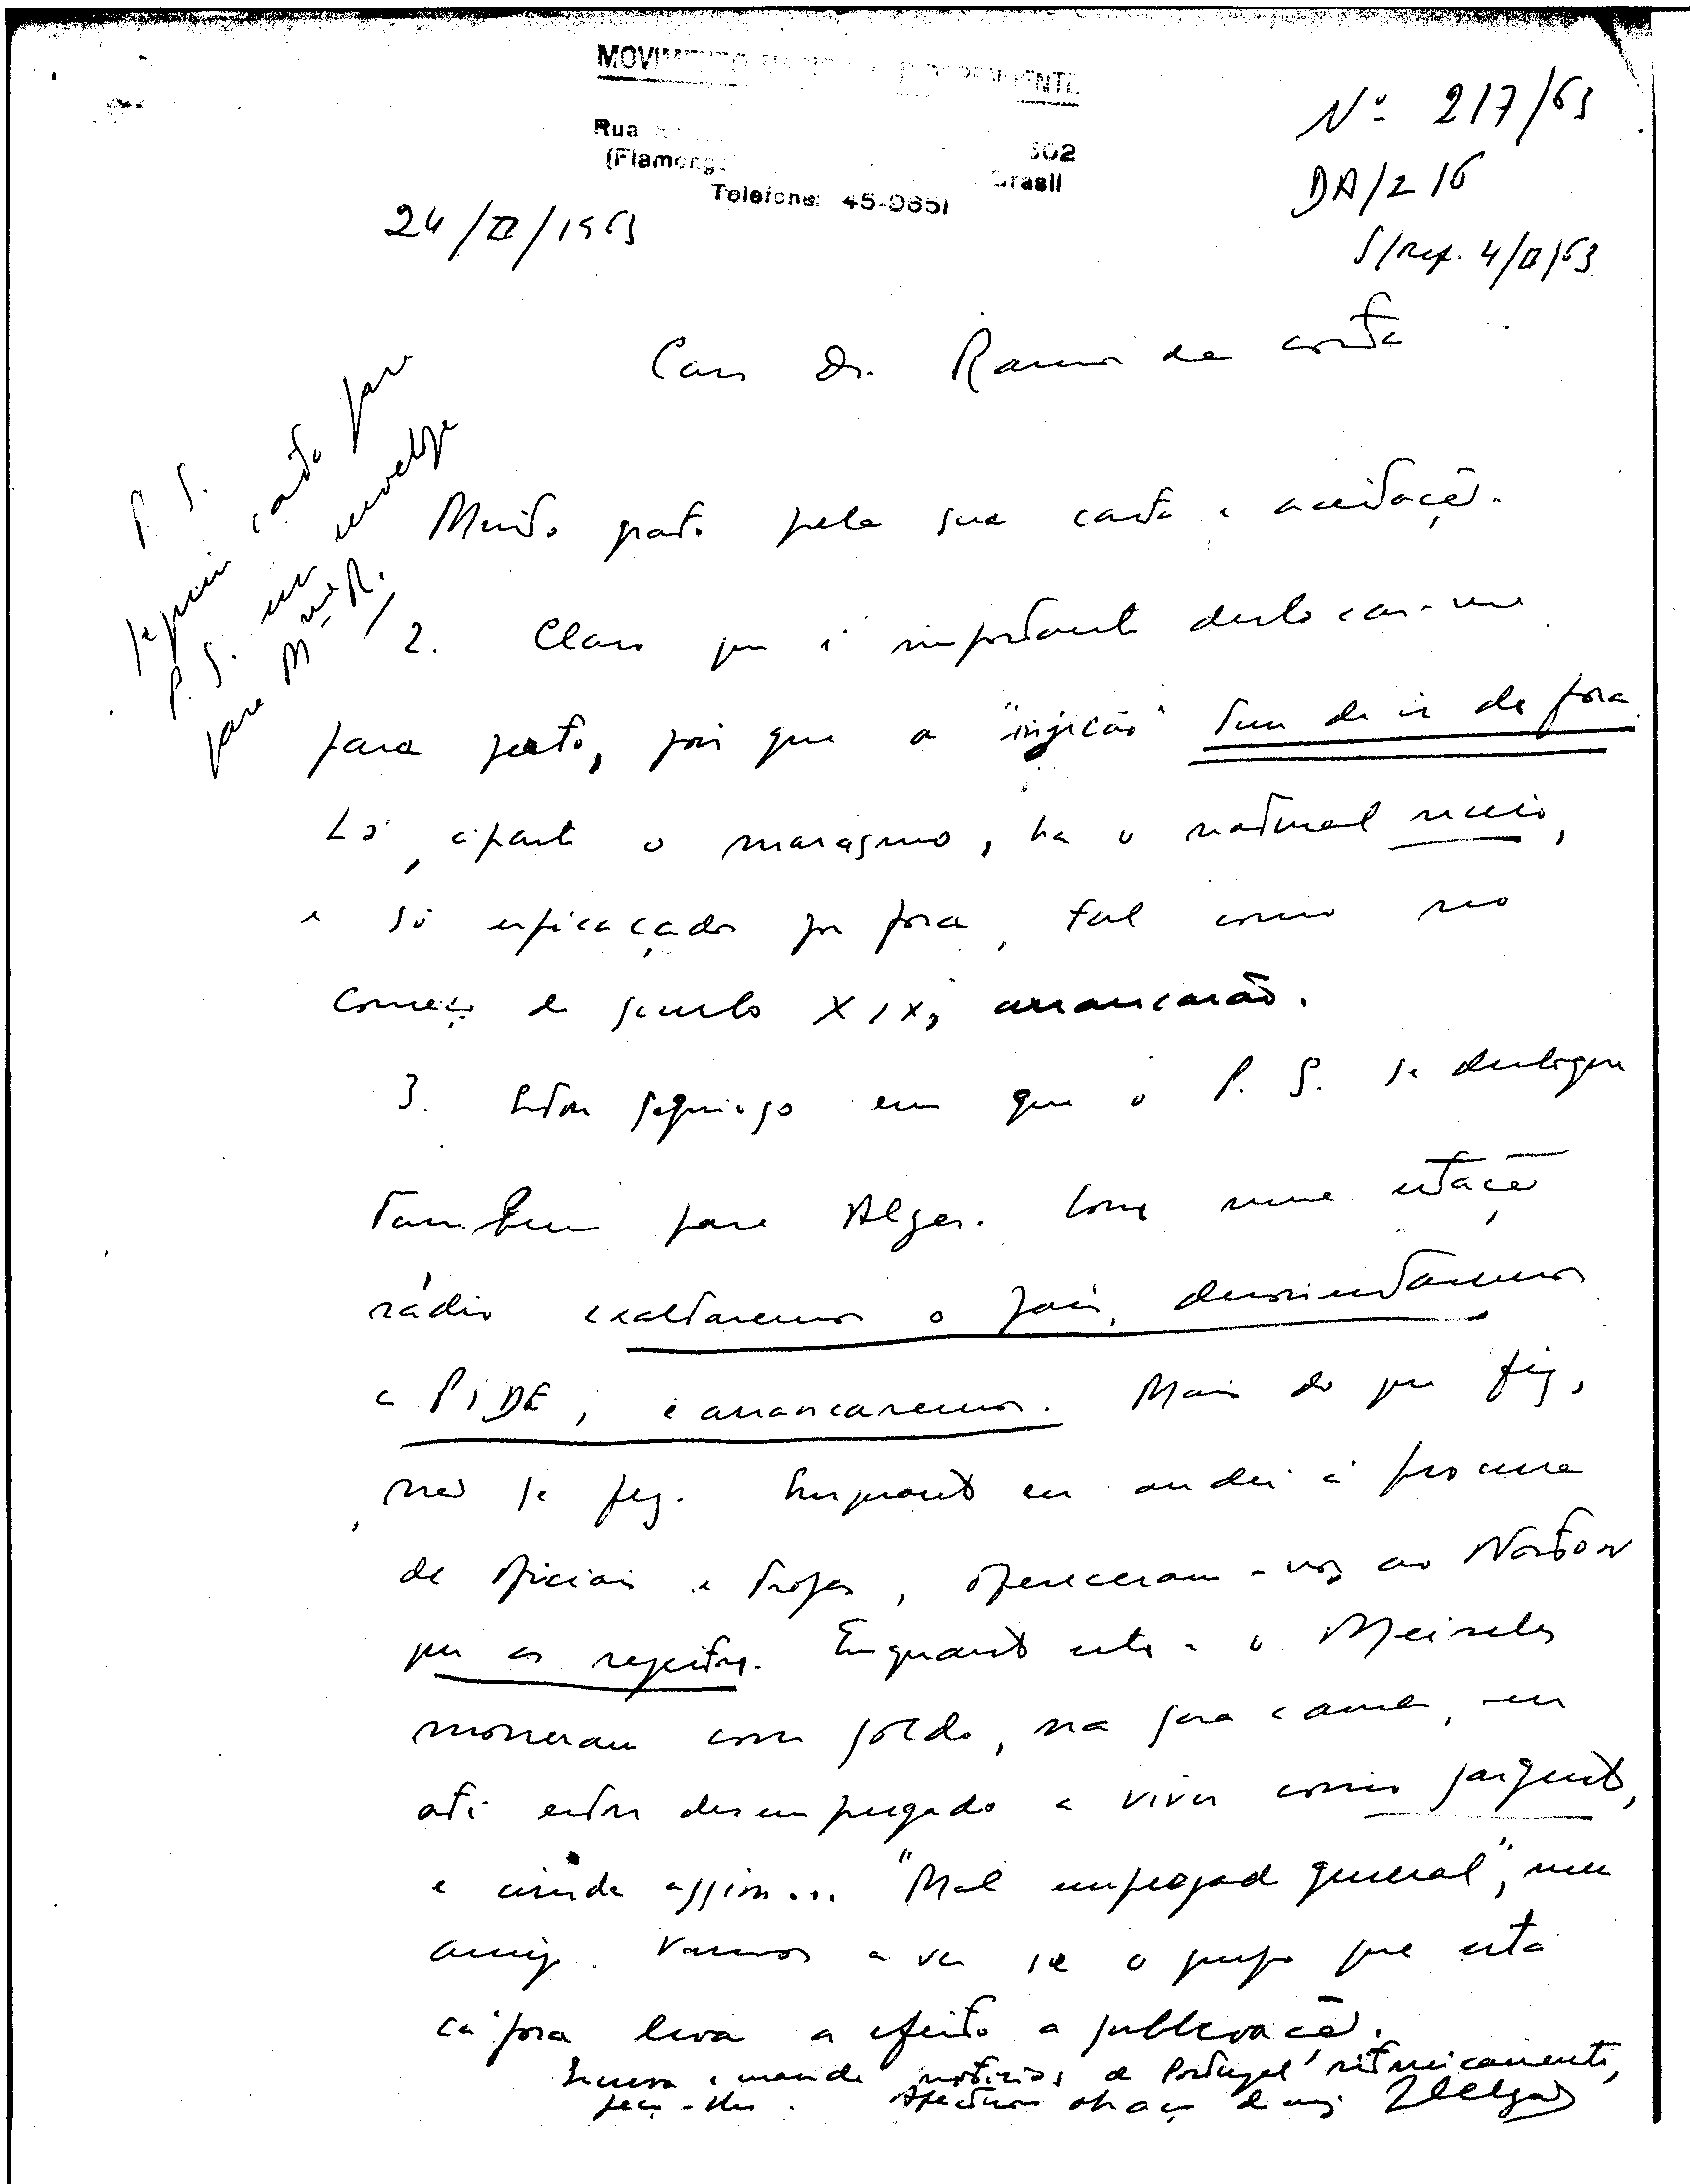 MOVIMENTO NACIONAL INDEPENDENTE
Rua
(Flamengo 502
Brasil
Telefone: 45-0651
Nº 217/63
DA/216
S/ref. 4/II/63
24/II/1963
Caro Dr. Ramos da Costa
P. S.
Seguiu carta para
P. S. em envelope
para Mme R.
Muito grato pela sua carta e aceitação.
2. Claro que é importante deslocar-me
para perto, pois que a "injeção" tem de ir de fora.
Lá, àparte o marasmo, ha o natural receio,
e só por fora, tal como no
começo do seculo XIX, arrancarão.
3. Estou em que o P. S. se desloque
tambem para Alger. Com uma estação
rádio exaltaremos o país, desorientaremos
a PIDE, e arrancaremos. Mais do que fiz,
não se fez. Enquanto eu andei à procura
de oficiais e tropas, ofereceram-nos ao Norton
que os rejeitou. Enquanto este e o Meireles
morreram com soldo, na sua cama, eu
até estou desempregado a viver como sargento,
e ainda assim... "Mal empregado general", meu
amigo. Vamos a ver se o grupo que está
cá fora leva a efeito a sublevação.
Escreva e mande noticias de Portugal ritmicamente,
peço-lhe. Afectuoso abraço do amigo Delgado